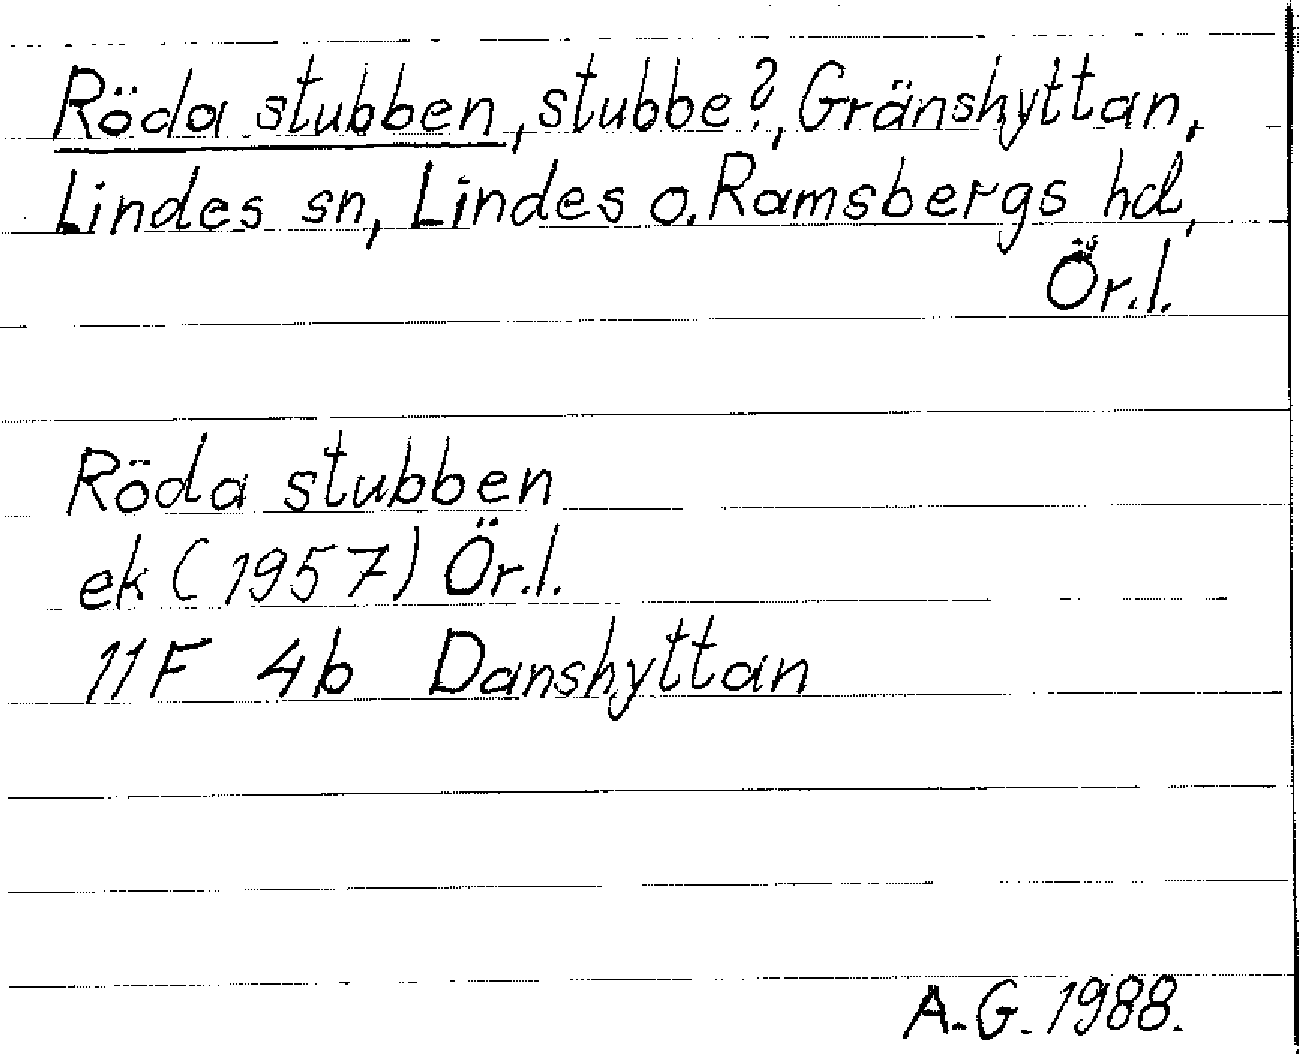 Röda stubben, stubbe?, Gränshyttan,
Lindes sn, Lindes o. Ramsbergs hd,
Ör.l.
Röda stubben
ek (1957) Ör.l.
11F 4b Danshyttan
A.G. 1988.